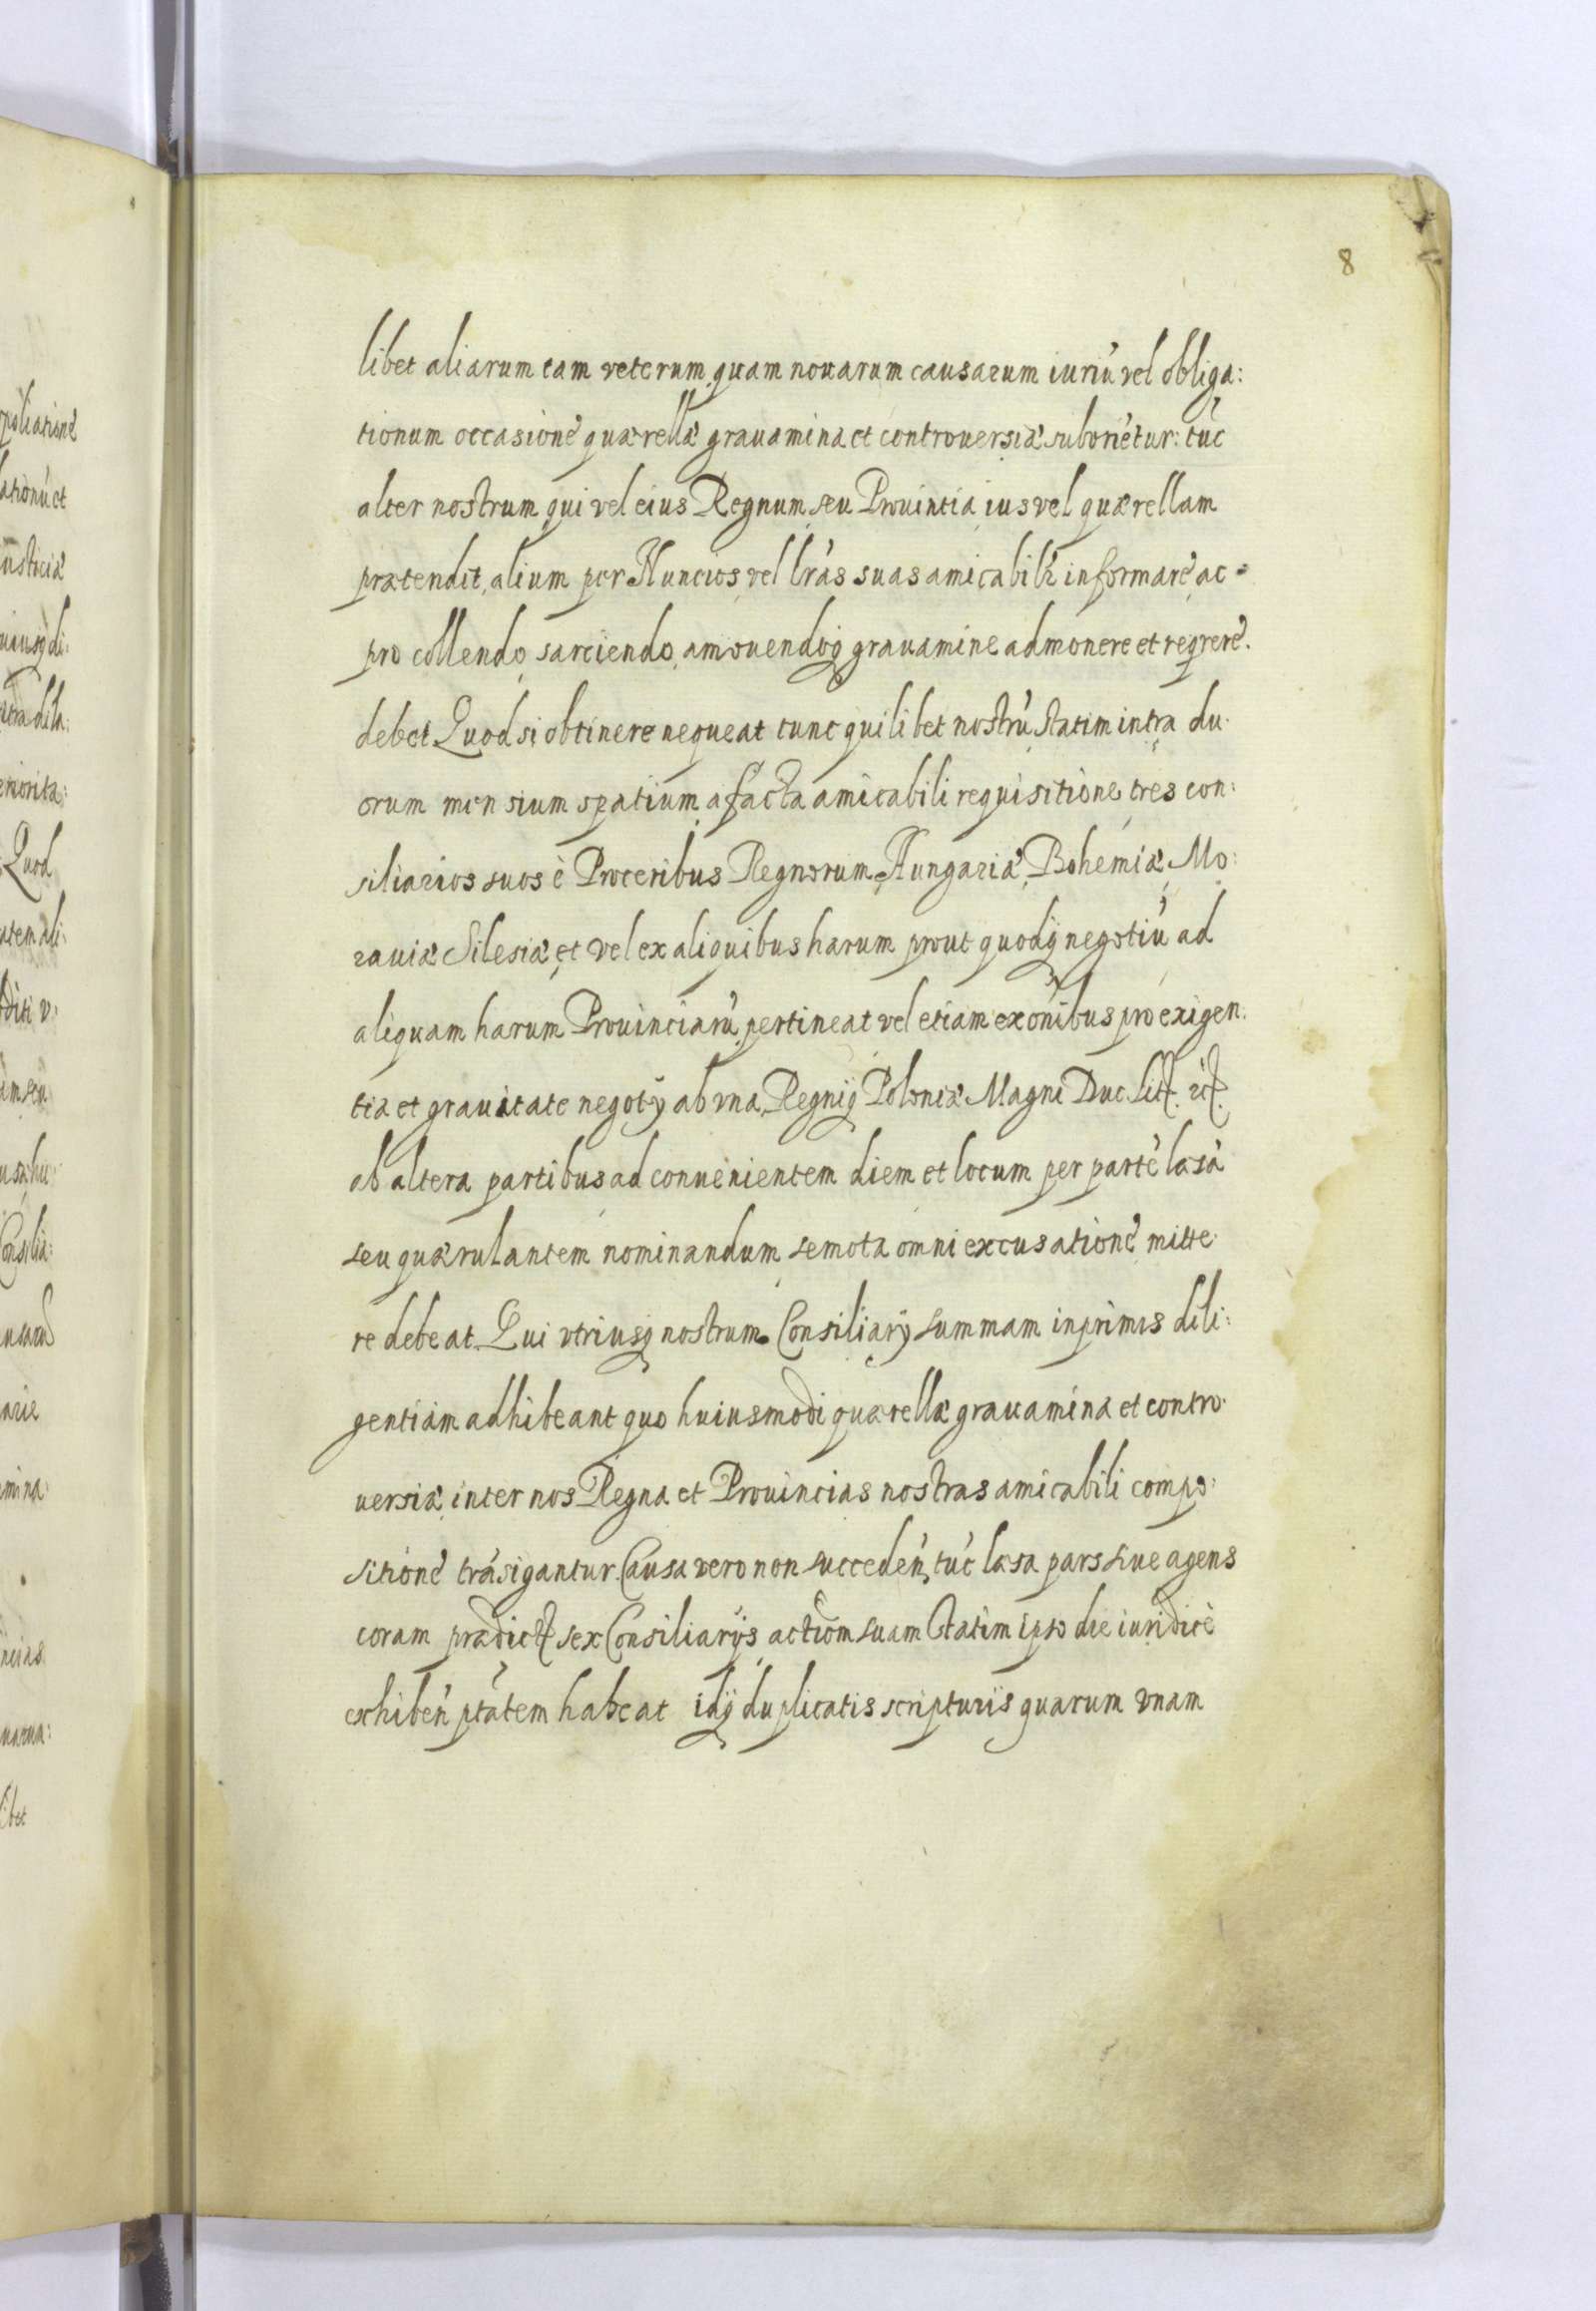 8
libet aliarum tam veterum quam nouarum causarum iuriū vel obliga:
tionum occasione quærellæ grauamina et controuersiæ suboriētur: tūc
alter nostrum qui vel eius Regnum seu Prouintia ius vel quærellam
prætendit, alium per Nuncios vel lr̃as suas amicabilr̃ informare, ac =
pro tollendo, sarciendo, amouendoq; grauamine admonere et reqrere.
debet Quod si obtinere nequeat tunc quilibet nostrū statim intra du:
orum mensium spatium a facta amicabili requisitione, tres con:
siliarios suos è Proceribus Regnorum Hungariæ, Bohemiæ, Mo:
rauiæ Silesiæ et vel ex aliquibus harum prout quodq; negotiū ad
aliquam harum Prouinciarū pertineat vel etiam ex oñibus pro exigen:
tia et grauitate negotÿ ab vna, Regniq; Poloniæ Magni Duc. Litt. &c.
ab altera partibus ad conuenientem diem et locum per partē læsā
seu quærulantem nominandum semota omni excusatione mitte:
re debeat. Qui vtriusq; nostrum Consiliarÿ summam inprimis dili:
gentiam adhibeant quo huiusmodi quærellæ grauamina et contro:
uersiæ inter nos Regna et Prouincias nostras amicabili compo:
sitione trāsigantur. Causa vero non succeden̄, tūc læsa pars siue agens
coram prædict. sex Consiliarÿs actiōm suam statim ipso die iuridicè
exhiben̄ ptātem habeat idq; duplicatis scripturis quarum vnam